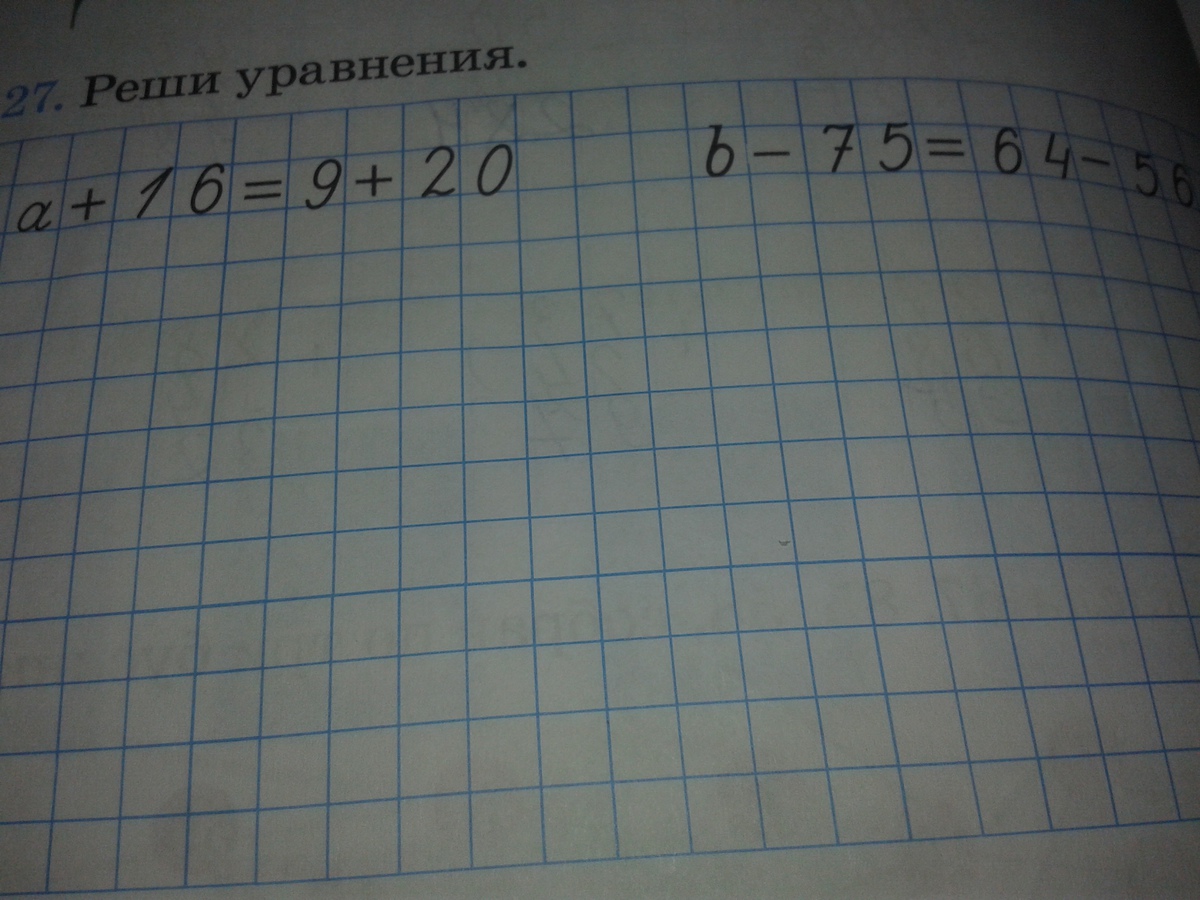 27. Реши уравнения.
a + 16 = 9 + 20
b - 75 = 64 - 56